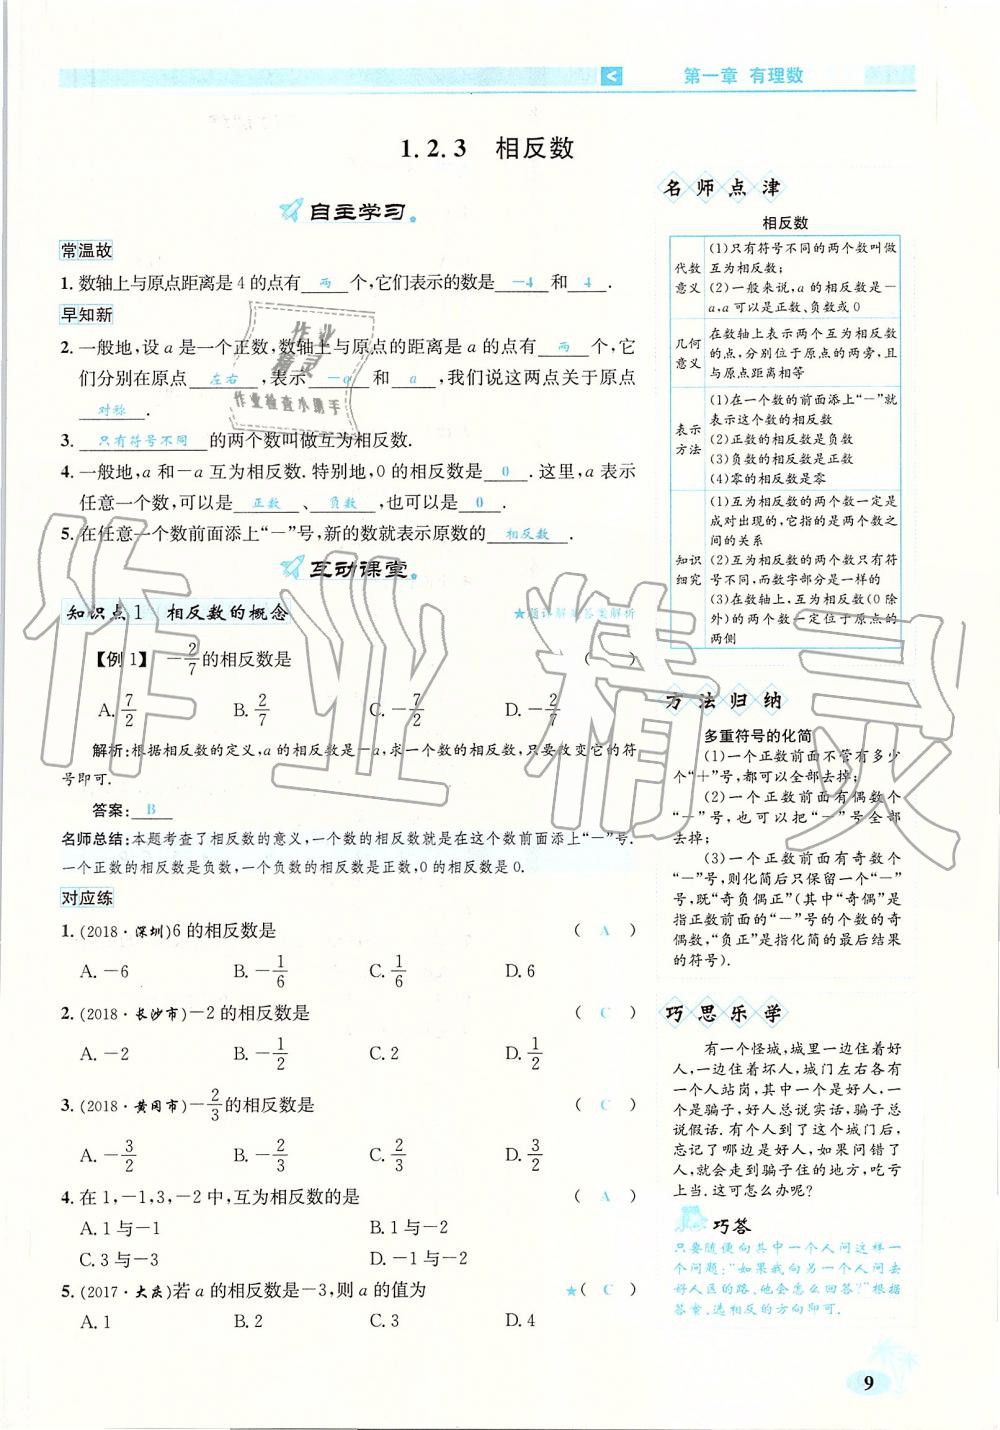 第一章 有理数
1.2.3 相反数
自主学习
常温故
1. 数轴上与原点距离是4的点有 两 个,它们表示的数是 -4 和 4 .
早知新
2. 一般地,设a是一个正数,数轴上与原点的距离是a的点有 两 个,它
们分别在原点 左右 ,表示 -a 和 a ,我们说这两点关于原点
对称 .
3. 只有符号不同 的两个数叫做互为相反数.
4. 一般地,a和-a互为相反数.特别地,0的相反数是 0 .这里,a表示
任意一个数,可以是 正数 、 负数 ,也可以是 0 .
5. 在任意一个数前面添上“-”号,新的数就表示原数的 相反数 .
互动课堂
知识点1 相反数的概念
【例1】 -2/7的相反数是 ( )
A. 7/2 B. 2/7 C. -7/2 D. -2/7
解析:根据相反数的定义,a的相反数是-a,求一个数的相反数,只要改变它的符
号即可.
答案: B
名师总结:本题考查了相反数的意义,一个数的相反数就是在这个数前面添上“-”号.
一个正数的相反数是负数,一个负数的相反数是正数,0的相反数是0.
对应练
1. (2018·深圳)6的相反数是 ( A )
A. -6 B. -1/6 C. 1/6 D. 6
2. (2018·长沙市)-2的相反数是 ( C )
A. -2 B. -1/2 C. 2 D. 1/2
3. (2018·黄冈市)-2/3的相反数是 ( C )
A. -3/2 B. -2/3 C. 2/3 D. 3/2
4. 在1,-1,3,-2中,互为相反数的是 ( A )
A. 1与-1 B. 1与-2
C. 3与-3 D. -1与-2
5. (2017·大庆)若a的相反数是-3,则a的值为 ★( C )
A. 1 B. 2 C. 3 D. 4
名师点津
相反数
代数意义
(1)只有符号不同的两个数叫做
互为相反数;
(2)一般来说,a的相反数是-
a,a可以是正数、负数或0
几何意义
在数轴上表示两个互为相反数
的点,分别位于原点的两旁,且
与原点距离相等
表示方法
(1)在一个数的前面添上“-”就
表示这个数的相反数
(2)正数的相反数是负数
(3)负数的相反数是正数
(4)零的相反数是零
知识细究
(1)互为相反数的两个数一定是
成对出现的,它指的是两个数之
间的关系
(2)互为相反数的两个数只有符
号不同,而数字部分是一样的
(3)在数轴上,互为相反数(0除
外)的两个数一定位于原点的
两侧
方法归纳
多重符号的化简
(1)一个正数前面不管有多少
个“+”号,都可以全部去掉;
(2)一个正数前面有偶数个
“-”号,也可以把“-”号全部
去掉;
(3)一个正数前面有奇数个
“-”号,则化简后只保留一个“-”
号,既“奇负偶正”(其中“奇偶”是
指正数前面的“-”号的个数的奇
偶数,“负正”是指化简的最后结果
的符号).
巧思乐学
有一个怪城,城里一边住着好
人,一边住着坏人,城门左右各有
一个人站岗,其中一个是好人,一
个是骗子,好人总说实话,骗子总
说假话.有个人到了这个城门后,
忘记了哪边是好人,如果问错了
人,就会走到骗子住的地方,吃亏
上当.这可怎么办呢?
巧答
只要随便向其中一个人问这样一
个问题:“如果我向另一个人问去
好人区的路,他会怎么回答?”根据
答案,选相反的方向即可.
9
作业精灵
作业检查小助手
作业精灵